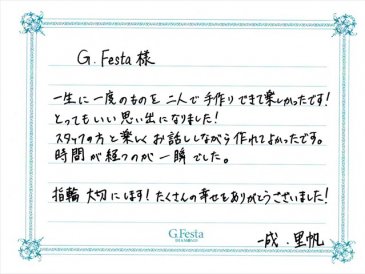 G.Festa様
一生に一度のものを二人で手作りできて楽しかったです!
とってもいい思い出になりました!
スタッフの方と楽しくお話ししながら作れてよかったです。
時間が経つのが一瞬でした。
指輪大切にします!たくさんの幸せをありがとうございました!
G.Festa
一成.里帆